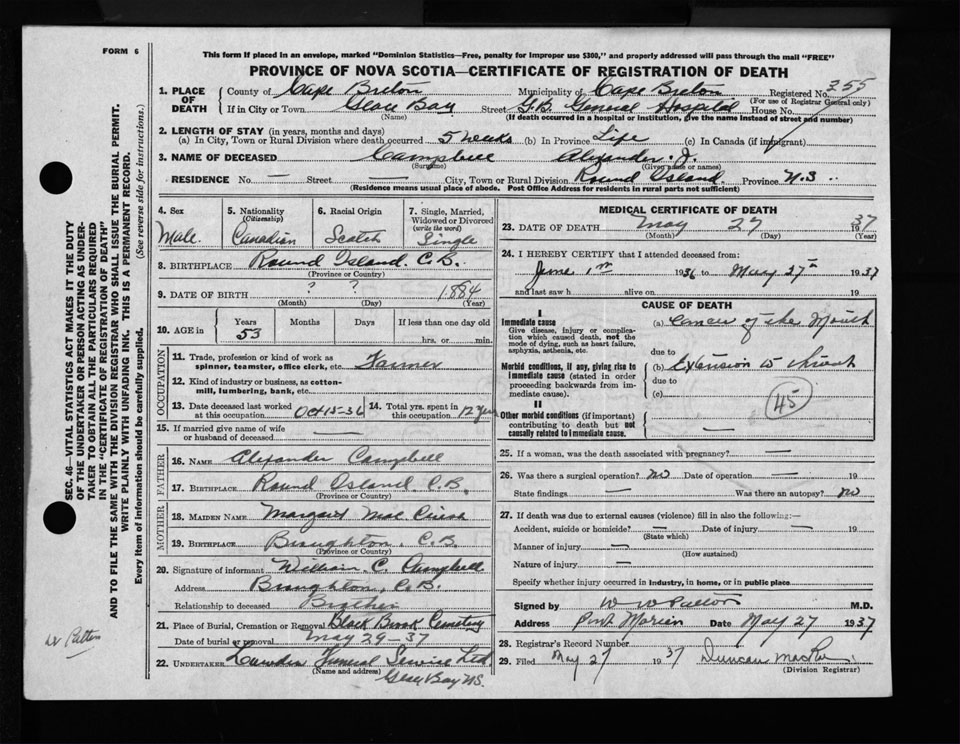 FORM 6
This form if placed in an envelope, marked "Dominion Statistics—Free, penalty for improper use $300," and properly addressed will pass through the mail "FREE"
PROVINCE OF NOVA SCOTIA—CERTIFICATE OF REGISTRATION OF DEATH
1. PLACE OF DEATH
County of Cape Breton Municipality of Cape Breton Registered No. 355
(For use of Registrar General only)
If in City or Town Glace Bay Street G.B. General Hospital House No.
(Name) (If death occurred in a hospital or institution, give the name instead of street and number)
2. LENGTH OF STAY (in years, months and days)
(a) In City, Town or Rural Division where death occurred 5 weeks (b) In Province Life (c) In Canada (if immigrant)
3. NAME OF DECEASED Campbell Alexander J.
(Surname) (Given names or names)
RESIDENCE No. — Street — City, Town or Rural Division Round Island Province N.S.
(Residence means usual place of abode. Post Office Address for residents in rural parts not sufficient)
SEC. 46—VITAL STATISTICS ACT MAKES IT THE DUTY
OF THE UNDERTAKER OR PERSON ACTING AS UNDER-
TAKER TO OBTAIN ALL THE PARTICULARS REQUIRED
IN THE "CERTIFICATE OF REGISTRATION OF DEATH"
AND TO FILE THE SAME WITH THE DIVISION REGISTRAR WHO SHALL ISSUE THE BURIAL PERMIT.
WRITE PLAINLY WITH UNFADING INK. THIS IS A PERMANENT RECORD.
Every item of information should be carefully supplied. (See reverse side for instructions.)
4. Sex Male
5. Nationality (Citizenship) Canadian
6. Racial Origin Scotch
7. Single, Married, Widowed or Divorced (write the word) Single
8. BIRTHPLACE Round Island. C.B.
(Province or Country)
9. DATE OF BIRTH ? ? 1884
(Month) (Day) (Year)
10. AGE in Years 53 Months Days If less than one day old
hrs. or min.
OCCUPATION
11. Trade, profession or kind of work as spinner, teamster, office clerk, etc. Farmer
12. Kind of industry or business, as cotton-mill, lumbering, bank, etc.
13. Date deceased last worked at this occupation Oct 15-36
14. Total yrs. spent in this occupation 12 Years
15. If married give name of wife or husband of deceased —
FATHER
16. NAME Alexander Campbell
17. BIRTHPLACE Round Island. C.B.
(Province or Country)
MOTHER
18. MAIDEN NAME Margaret
19. BIRTHPLACE Broughton. C.B.
(Province or Country)
20. Signature of informant William C. Campbell
Address Broughton, C.B.
Relationship to deceased Brother
21. Place of Burial, Cremation or Removal Black Brook Cemetery
Date of burial or removal May 29-37
22. UNDERTAKER Funeral Service Ltd
(Name and address)
Glace Bay N.S.
MEDICAL CERTIFICATE OF DEATH
23. DATE OF DEATH May 27 1937
(Month) (Day) (Year)
24. I HEREBY CERTIFY that I attended deceased from:
June 1st 1936 to May 27th 1937
and last saw h alive on 19
CAUSE OF DEATH
I
Immediate cause (a) Cancer of the Mouth
Give disease, injury or complication which caused death, not the mode of dying, such as heart failure, asphyxia, asthenia, etc.
due to
Morbid conditions, if any, giving rise to immediate cause (stated in order proceeding backwards from immediate cause). (b) Extension to throat
due to
(c)
45
II
Other morbid conditions (if important) contributing to death but not causally related to immediate cause. —
25. If a woman, was the death associated with pregnancy? —
26. Was there a surgical operation? no Date of operation — 19
State findings — Was there an autopsy? no
27. If death was due to external causes (violence) fill in also the following:—
Accident, suicide or homicide? — Date of injury — 19
(State which)
Manner of injury —
(How sustained)
Nature of injury —
Specify whether injury occurred in industry, in home, or in public place
Signed by W W Patton M.D.
Address Port Morien Date May 27 1937
28. Registrar's Record Number
29. Filed May 27 1937 Duncan
(Division Registrar)
Dr Patton